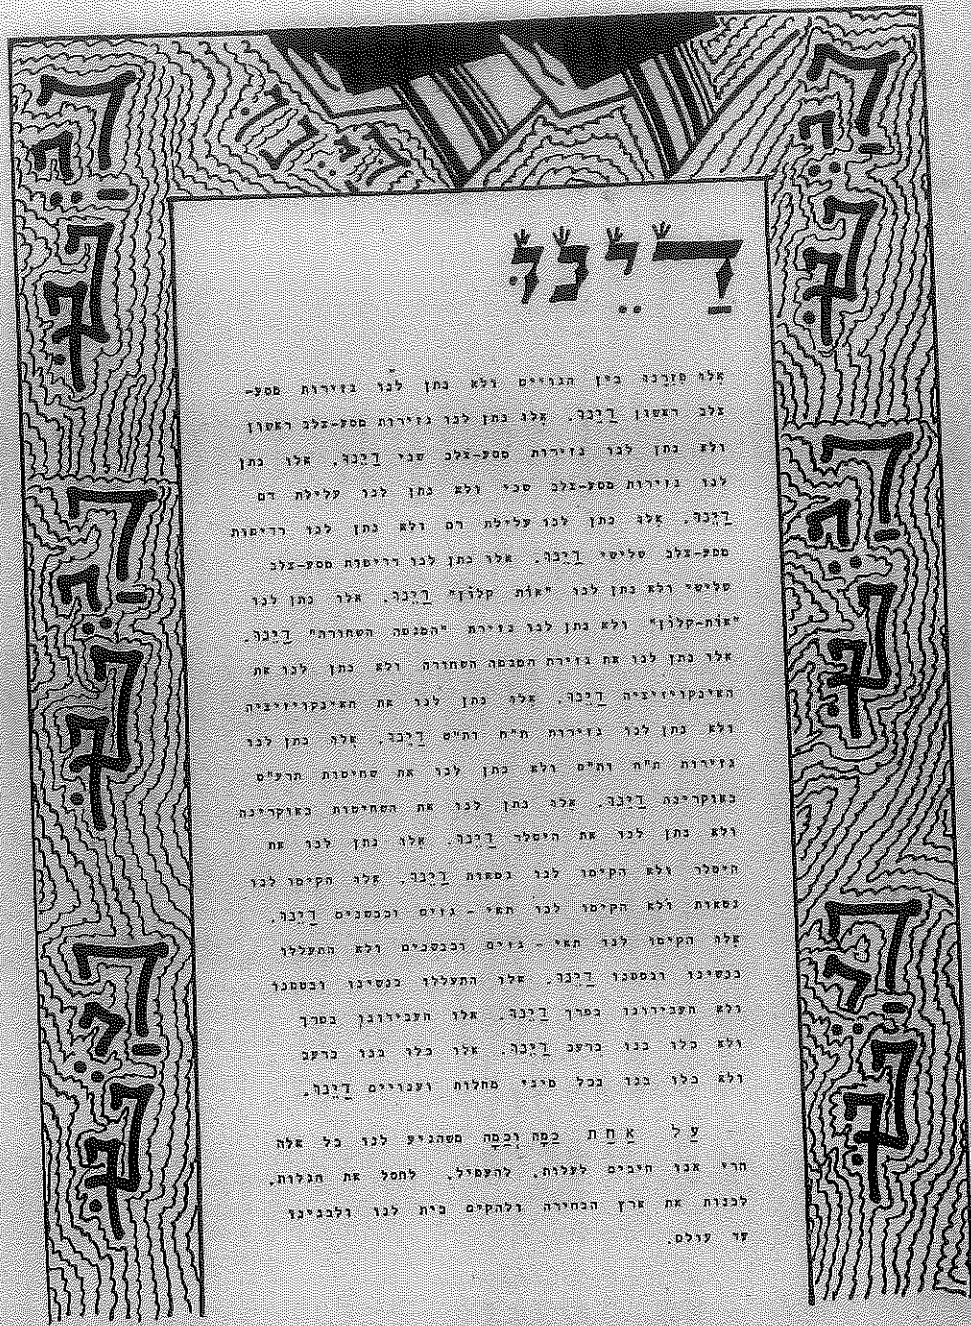 דַיֵנוּ
דַיֵנוּ
אלו פזרנו בין הגויים ולא נתן לנו גזירות מסע-
צלב ראשון דַיֵנוּ. אלו נתן לנו גזירות מסע-צלב ראשון
ולא נתן לנו גזירות מסע-צלב שני דַיֵנוּ. אלו נתן
לנו גזירות מסע-צלב שני ולא נתן לנו עלילת דם
דַיֵנוּ. אלו נתן לנו עלילת דם ולא נתן לנו רדיפות
מסע-צלב שלישי דַיֵנוּ. אלו נתן לנו רדיפות מסע-צלב
שלישי ולא נתן לנו "אות קלון" דַיֵנוּ. אלו נתן לנו
"אות-קלון" ולא נתן לנו גזירת "המגפה השחורה" דַיֵנוּ.
אלו נתן לנו את גזירת המגפה השחורה ולא נתן לנו את
האינקויזיציה דַיֵנוּ. אלו נתן לנו את האינקויזיציה
ולא נתן לנו גזירות ת"ח ות"ט דַיֵנוּ. אלו נתן לנו
גזירות ת"ח ות"ט ולא נתן לנו את שחיטות תרע"ט
באוקרינה דַיֵנוּ. אלו נתן לנו את השחיטות באוקרינה
ולא נתן לנו את היטלר דַיֵנוּ. אלו נתן לנו את
היטלר ולא הקימו לנו גטאות דַיֵנוּ. אלו הקימו לנו
גטאות ולא הקימו לנו תאי - גזים וכבשנים דַיֵנוּ.
אלו הקימו לנו תאי - גזים וכבשנים ולא התעללו
בנשינו ובטפנו דַיֵנוּ. אלו התעללו בנשינו ובטפנו
ולא העבידונו בפרך דַיֵנוּ. אלו העבידונו בפרך
ולא כלו בנו ברעב דַיֵנוּ. אלו כלו בנו ברעב
ולא כלו בנו בכל מיני מחלות וענויים דַיֵנוּ.
עַל אַחַת כַּמָה וְכַמָה משהגיע לנו כל אלה
הרי אנו חיבים לעלות. להעפיל. לחסל את הגלות.
לבנות את ארץ הבחירה ולהקים בית לנו ולבנינו
עד עולם.
דַיֵנוּ
דַיֵנוּ
דַיֵנוּ
דַיֵנוּ
דַיֵנוּ
דַיֵנוּ